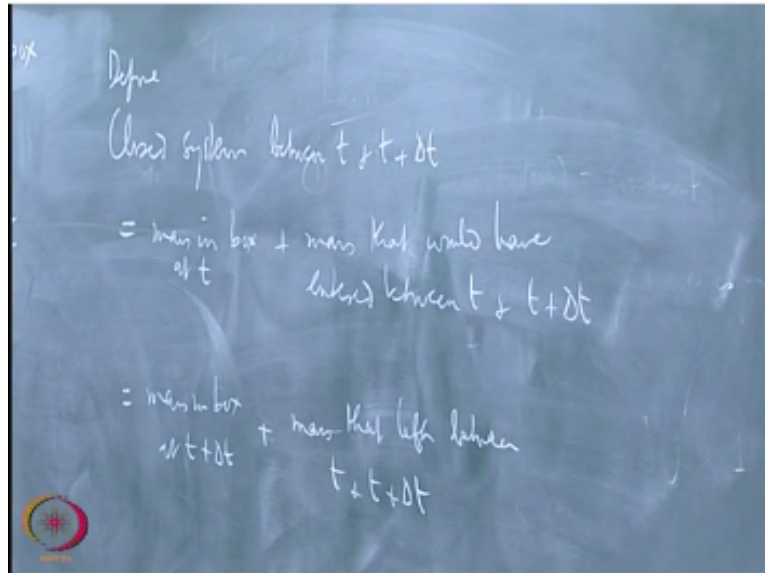 box
Define
Closed system between t & t + Δt
= mass in box + mass that would have
at t
entered between t & t + Δt
= mass in box + mass that left between
at t + Δt
t & t + Δt